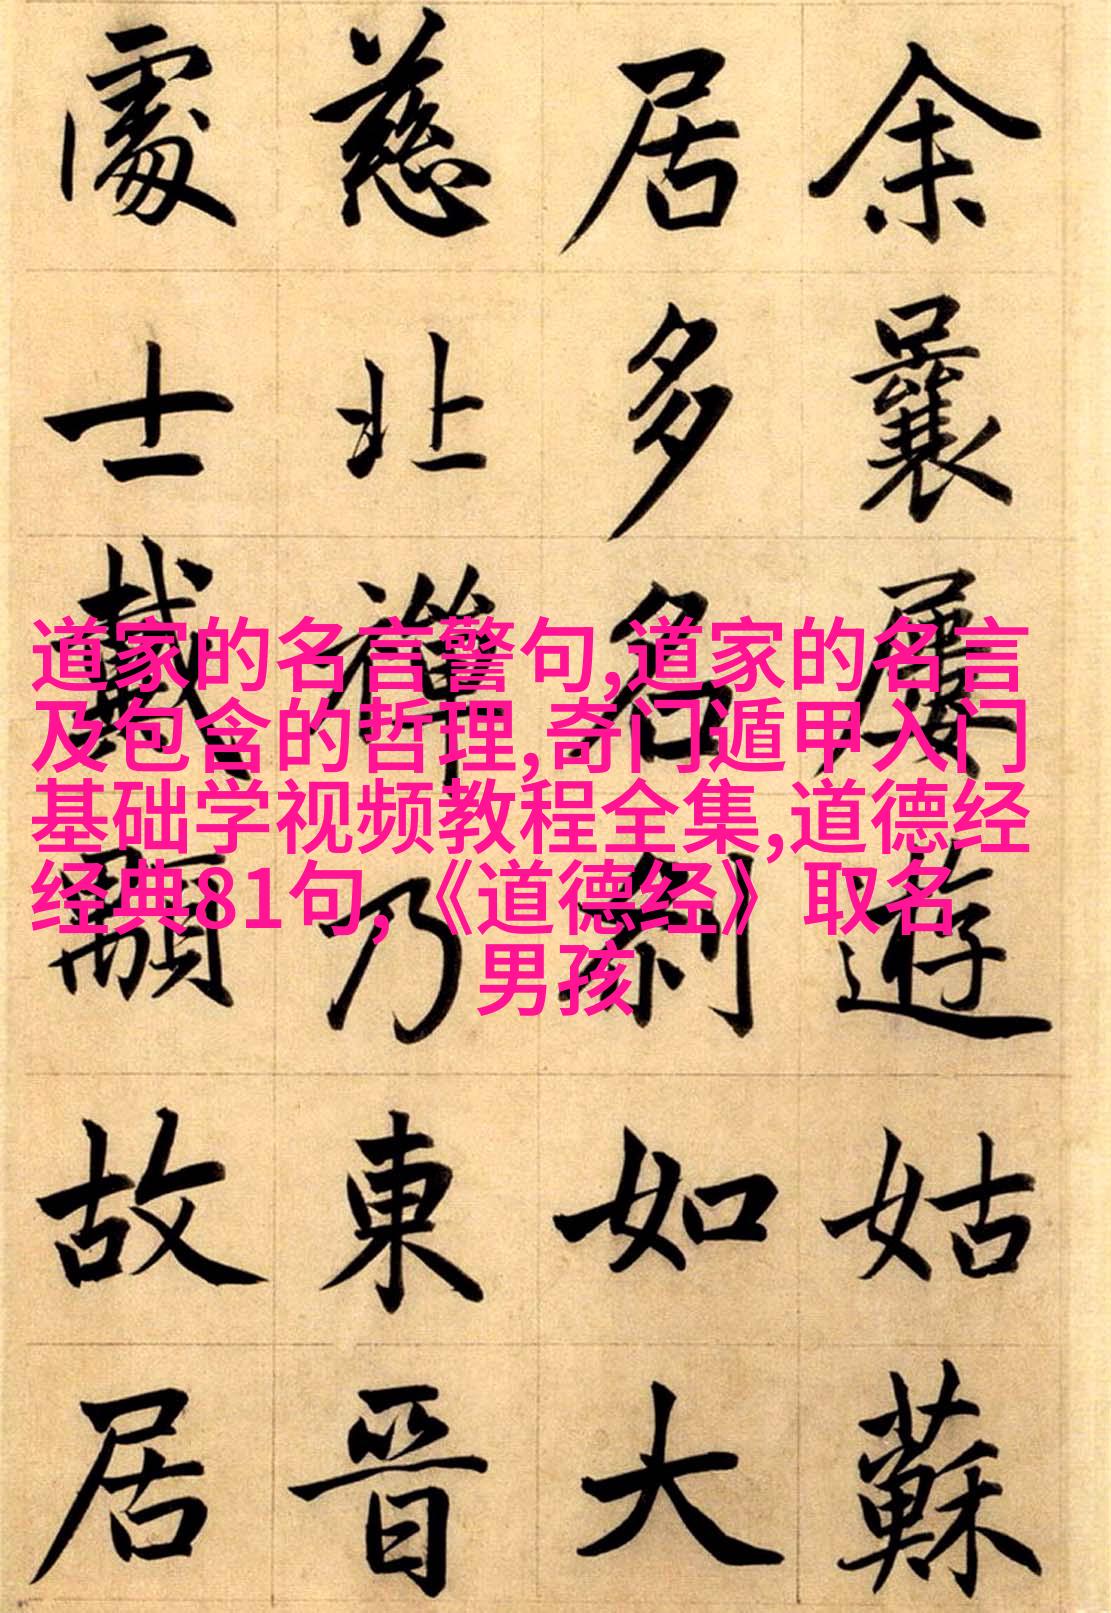 余曩屢遊姑蘇
居多名刹如大
慈北禪乃東晉
處士戴顒故居
道家的名言警句,道家的名言
及包含的哲理,奇门遁甲入门
基础学视频教程全集,道德经
经典81句,《道德经》取名
男孩